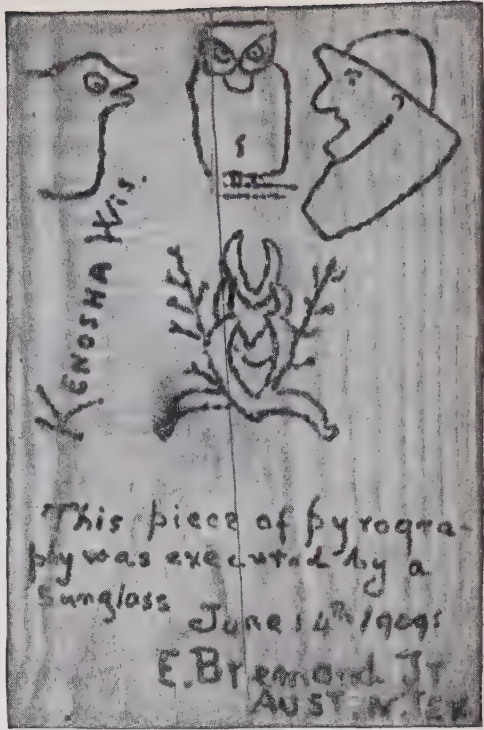 KENOSHA Wis.
This piece of pyrogra-
phy was executed by a
Sunglass
June 14th 1909
E. Brennand Jr
AUSTIN. TEX